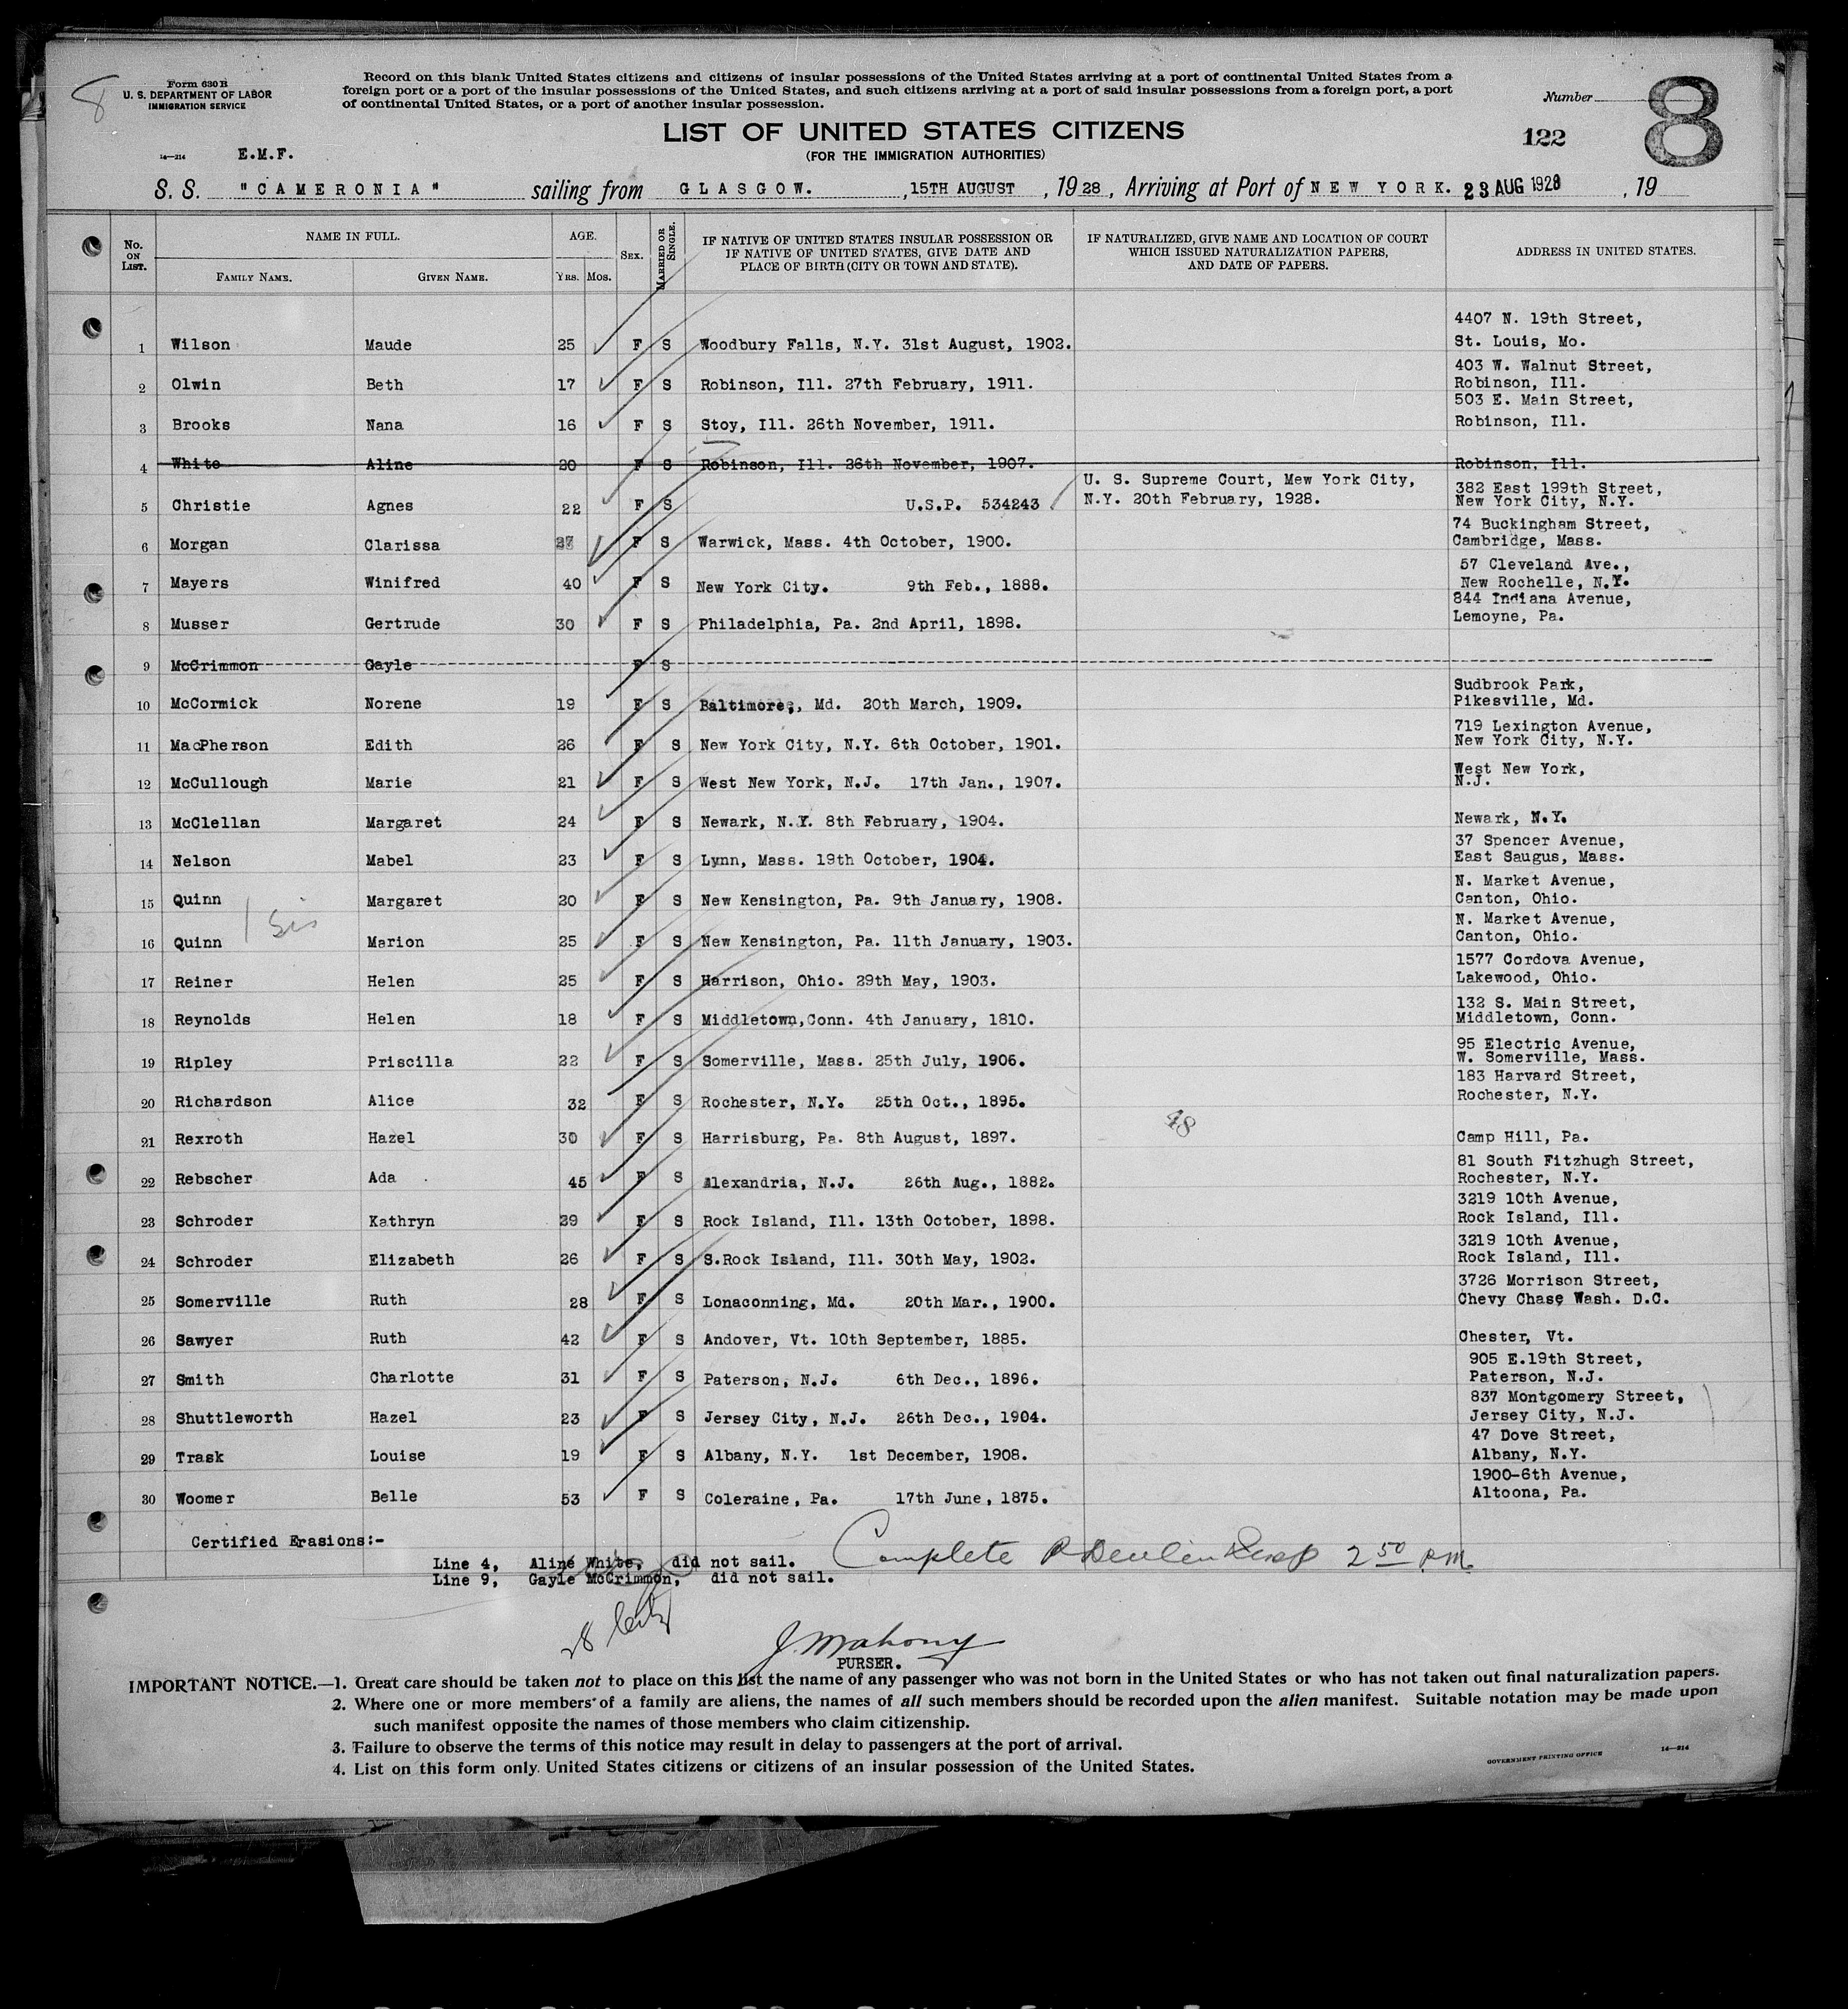 8
Form 630 B
U. S. DEPARTMENT OF LABOR
IMMIGRATION SERVICE
Record on this blank United States citizens and citizens of insular possessions of the United States arriving at a port of continental United States from a
foreign port or a port of the insular possessions of the United States, and such citizens arriving at a port of said insular possessions from a foreign port, a port
of continental United States, or a port of another insular possession.
Number
8
LIST OF UNITED STATES CITIZENS
122
14—214 E.M.F.
(FOR THE IMMIGRATION AUTHORITIES)
S. S. "CAMERONIA" sailing from GLASGOW. , 15TH AUGUST , 1928, Arriving at Port of NEW YORK. 23 AUG 1928 , 19
No. ON LIST. NAME IN FULL. AGE. SEX. MARRIED OR SINGLE. IF NATIVE OF UNITED STATES INSULAR POSSESSION OR IF NATIVE OF UNITED STATES, GIVE DATE AND PLACE OF BIRTH (CITY OR TOWN AND STATE). IF NATURALIZED, GIVE NAME AND LOCATION OF COURT WHICH ISSUED NATURALIZATION PAPERS, AND DATE OF PAPERS. ADDRESS IN UNITED STATES.
FAMILY NAME. GIVEN NAME. YRS. MOS.
4407 N. 19th Street,
1 Wilson Maude 25 F S Woodbury Falls, N.Y. 31st August, 1902. St. Louis, Mo.
403 W. Walnut Street,
2 Olwin Beth 17 F S Robinson, Ill. 27th February, 1911. Robinson, Ill.
503 E. Main Street,
3 Brooks Nana 16 F S Stoy, Ill. 26th November, 1911. Robinson, Ill.
4 White Aline 20 F S Robinson, Ill. 26th November, 1907. Robinson, Ill.
U. S. Supreme Court, Mew York City, 382 East 199th Street,
5 Christie Agnes 22 F S U.S.P. 534243 N.Y. 20th February, 1928. New York City, N.Y.
74 Buckingham Street,
6 Morgan Clarissa 27 F S Warwick, Mass. 4th October, 1900. Cambridge, Mass.
57 Cleveland Ave.,
7 Mayers Winifred 40 F S New York City. 9th Feb., 1888. New Rochelle, N.Y.
844 Indiana Avenue,
8 Musser Gertrude 30 F S Philadelphia, Pa. 2nd April, 1898. Lemoyne, Pa.
9 McCrimmon Gayle F S
Sudbrook Park,
10 McCormick Norene 19 F S Baltimore, Md. 20th March, 1909. Pikesville, Md.
719 Lexington Avenue,
11 MacPherson Edith 26 F S New York City, N.Y. 6th October, 1901. New York City, N.Y.
West New York,
12 McCullough Marie 21 F S West New York, N.J. 17th Jan., 1907. N.J.
13 McClellan Margaret 24 F S Newark, N.Y. 8th February, 1904. Newark, N.Y.
37 Spencer Avenue,
14 Nelson Mabel 23 F S Lynn, Mass. 19th October, 1904. East Saugus, Mass.
N. Market Avenue,
15 Quinn Margaret 20 F S New Kensington, Pa. 9th January, 1908. Canton, Ohio.
Sis
N. Market Avenue,
16 Quinn Marion 25 F S New Kensington, Pa. 11th January, 1903. Canton, Ohio.
1577 Cordova Avenue,
17 Reiner Helen 25 F S Harrison, Ohio. 29th May, 1903. Lakewood, Ohio.
132 S. Main Street,
18 Reynolds Helen 18 F S Middletown,Conn. 4th January, 1810. Middletown, Conn.
95 Electric Avenue,
19 Ripley Priscilla 22 F S Somerville, Mass. 25th July, 1906. W. Somerville, Mass.
183 Harvard Street,
20 Richardson Alice 32 F S Rochester, N.Y. 25th Oct., 1895. Rochester, N.Y.
48
21 Rexroth Hazel 30 F S Harrisburg, Pa. 8th August, 1897. Camp Hill, Pa.
81 South Fitzhugh Street,
22 Rebscher Ada 45 F S Alexandria, N.J. 26th Aug., 1882. Rochester, N.Y.
3219 10th Avenue,
23 Schroder Kathryn 29 F S Rock Island, Ill. 13th October, 1898. Rock Island, Ill.
3219 10th Avenue,
24 Schroder Elizabeth 26 F S S.Rock Island, Ill. 30th May, 1902. Rock Island, Ill.
3726 Morrison Street,
25 Somerville Ruth 28 F S Lonaconning, Md. 20th Mar., 1900. Chevy Chase Wash. D.C.
26 Sawyer Ruth 42 F S Andover, Vt. 10th September, 1885. Chester, Vt.
905 E.19th Street,
27 Smith Charlotte 31 F S Paterson, N.J. 6th Dec., 1896. Paterson, N.J.
837 Montgomery Street,
28 Shuttleworth Hazel 23 F S Jersey City, N.J. 26th Dec., 1904. Jersey City, N.J.
47 Dove Street,
29 Trask Louise 19 F S Albany, N.Y. 1st December, 1908. Albany, N.Y.
1900-6th Avenue,
30 Woomer Belle 53 F S Coleraine, Pa. 17th June, 1875. Altoona, Pa.
Certified Erasions:-
Line 4, Aline White, did not sail. Complete 2 50 P.M.
Line 9, Gayle McCrimmon, did not sail.
28
J. Mahony
PURSER.
IMPORTANT NOTICE.—1. Great care should be taken not to place on this list the name of any passenger who was not born in the United States or who has not taken out final naturalization papers.
2. Where one or more members of a family are aliens, the names of all such members should be recorded upon the alien manifest. Suitable notation may be made upon
such manifest opposite the names of those members who claim citizenship.
3. Failure to observe the terms of this notice may result in delay to passengers at the port of arrival.
4. List on this form only United States citizens or citizens of an insular possession of the United States.
GOVERNMENT PRINTING OFFICE 14—214